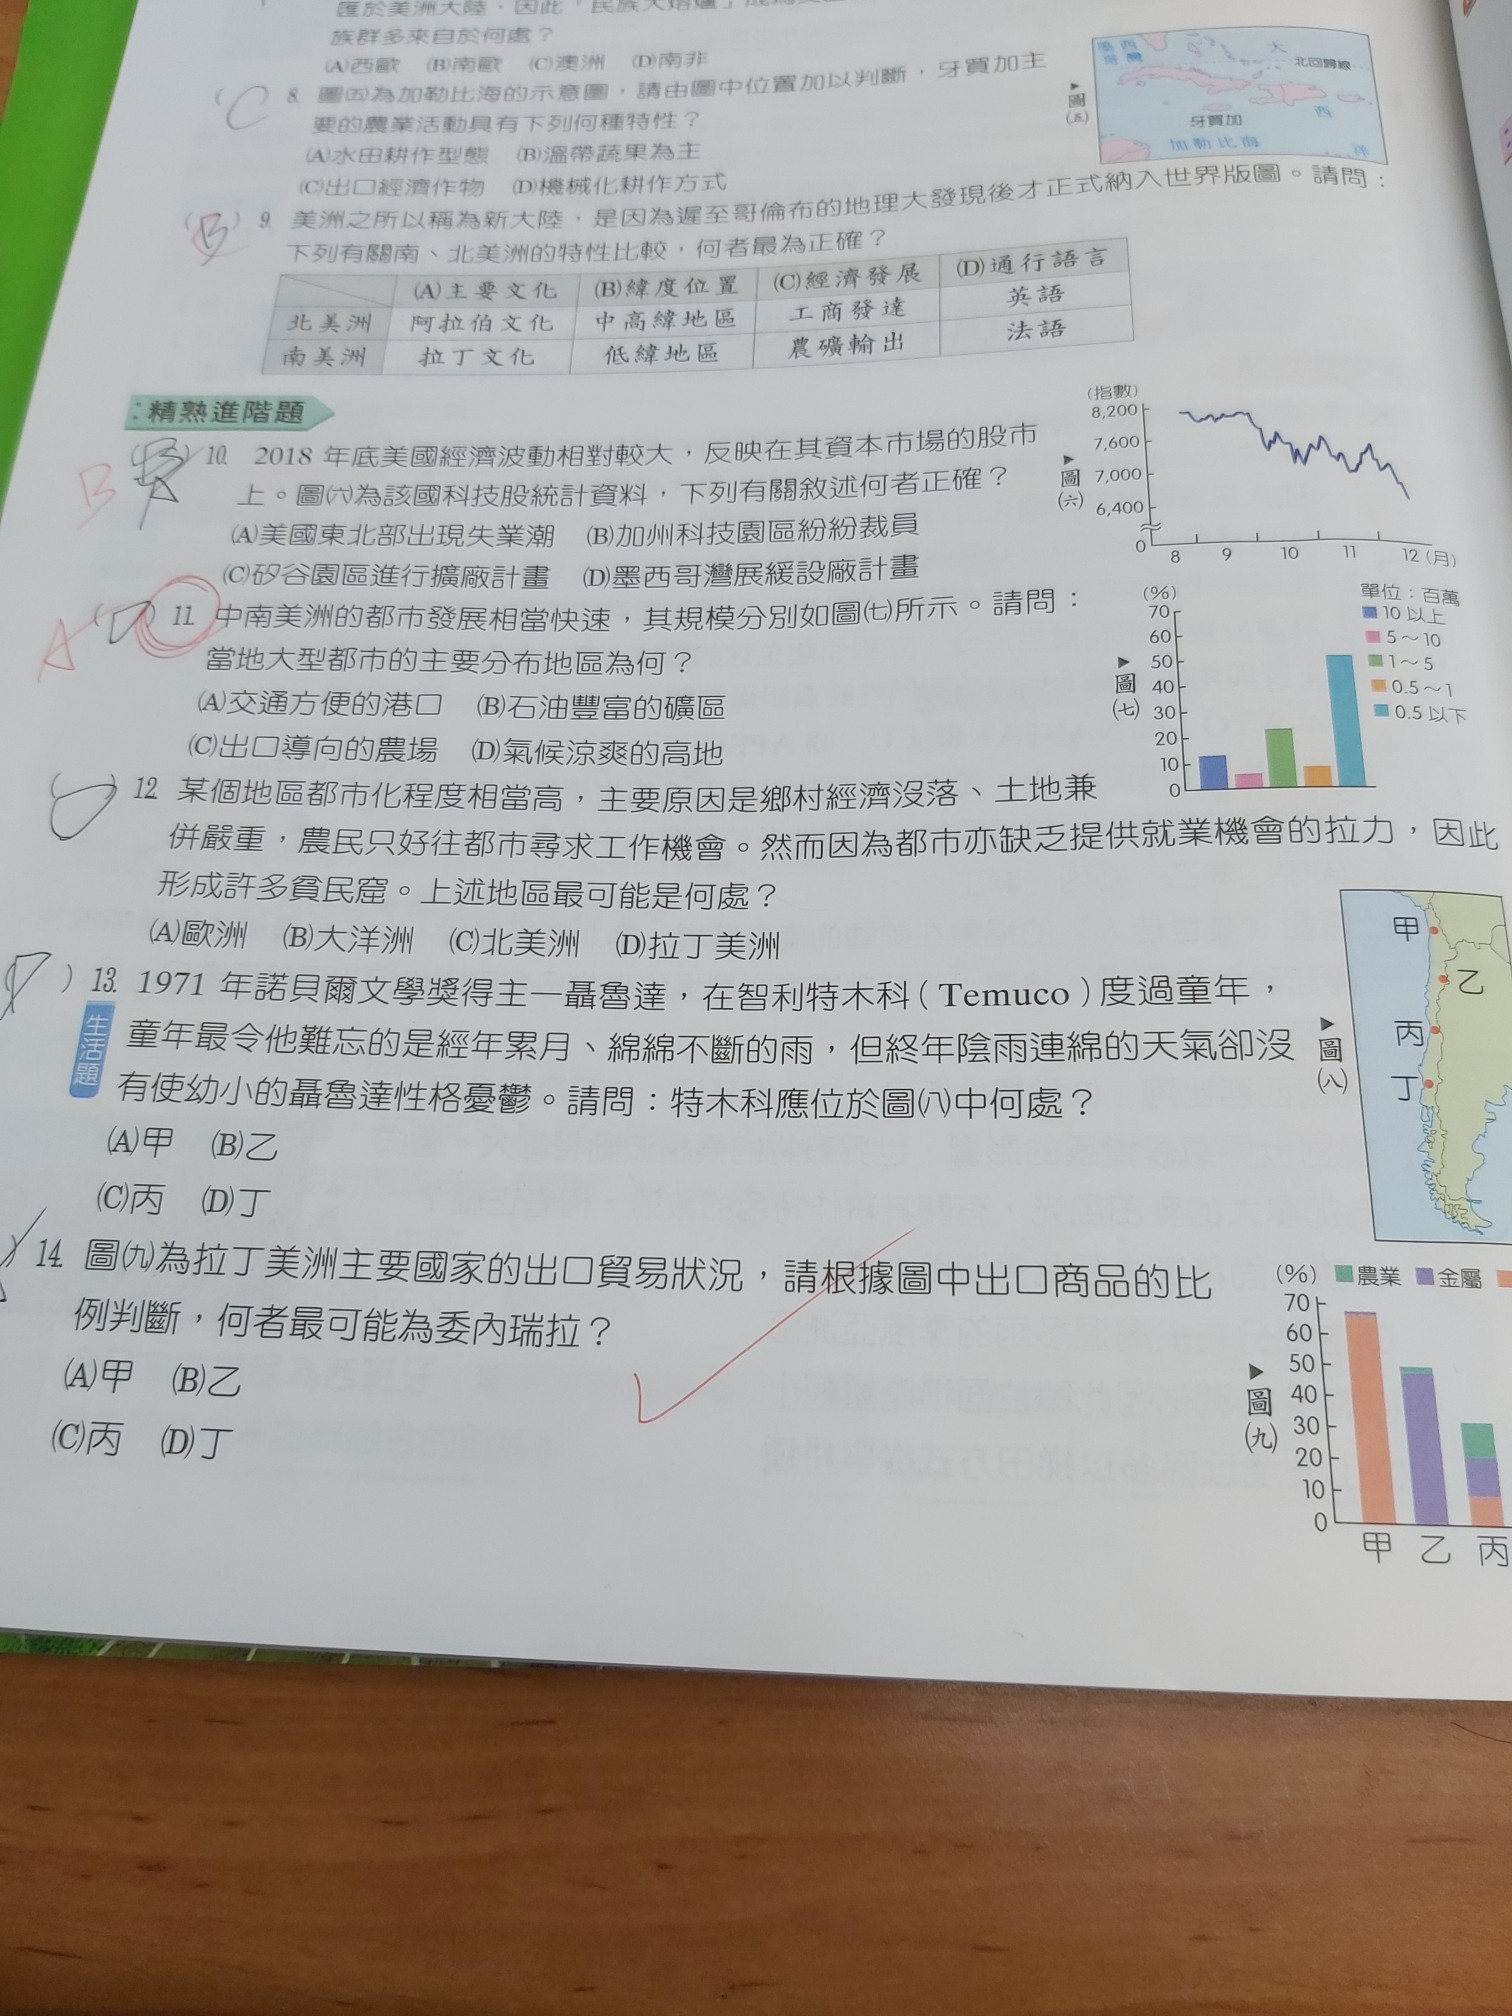 匯於美洲大陸，因此「民族大熔爐」成為美
族群多來自於何處？
(A)西歐 (B)南歐 (C)澳洲 (D)南非
(C 8. 圖㈤為加勒比海的示意圖，請由圖中位置加以判斷，牙買加主
要的農業活動具有下列何種特性？
(A)水田耕作型態 (B)溫帶蔬果為主
(C)出口經濟作物 (D)機械化耕作方式
▶圖(五)
墨西哥灣
大西洋
北回歸線
牙買加
加勒比海
(B) 9. 美洲之所以稱為新大陸，是因為遲至哥倫布的地理大發現後才正式納入世界版圖。請問：
下列有關南、北美洲的特性比較，何者最為正確？
(A)主要文化 (B)緯度位置 (C)經濟發展 (D)通行語言
北美洲 阿拉伯文化 中高緯地區 工商發達 英語
南美洲 拉丁文化 低緯地區 農礦輸出 法語
：精熟進階題
B
10. 2018 年底美國經濟波動相對較大，反映在其資本市場的股市
上。圖㈥為該國科技股統計資料，下列有關敘述何者正確？
(A)美國東北部出現失業潮 (B)加州科技園區紛紛裁員
(C)矽谷園區進行擴廠計畫 (D)墨西哥灣展緩設廠計畫
▶圖(六)
(指數)
8,200
7,600
7,000
6,400
0
8 9 10 11 12 (月)
A (D) 11. 中南美洲的都市發展相當快速，其規模分別如圖㈦所示。請問：
當地大型都市的主要分布地區為何？
(A)交通方便的港口 (B)石油豐富的礦區
(C)出口導向的農場 (D)氣候涼爽的高地
▶圖(七)
(%)
70
60
50
40
30
20
10
0
單位：百萬
10 以上
5～10
1～5
0.5～1
0.5 以下
( ) 12 某個地區都市化程度相當高，主要原因是鄉村經濟沒落、土地兼
併嚴重，農民只好往都市尋求工作機會。然而因為都市亦缺乏提供就業機會的拉力，因此
形成許多貧民窟。上述地區最可能是何處？
(A)歐洲 (B)大洋洲 (C)北美洲 (D)拉丁美洲
) 13. 1971 年諾貝爾文學獎得主—聶魯達，在智利特木科（Temuco）度過童年，
生活題
童年最令他難忘的是經年累月、綿綿不斷的雨，但終年陰雨連綿的天氣卻沒
有使幼小的聶魯達性格憂鬱。請問：特木科應位於圖㈧中何處？
(A)甲 (B)乙
(C)丙 (D)丁
▶圖(八)
甲
乙
丙
丁
) 14. 圖㈨為拉丁美洲主要國家的出口貿易狀況，請根據圖中出口商品的比
例判斷，何者最可能為委內瑞拉？
(A)甲 (B)乙
(C)丙 (D)丁
▶圖(九)
(%) 農業 金屬
70
60
50
40
30
20
10
0
甲 乙 丙